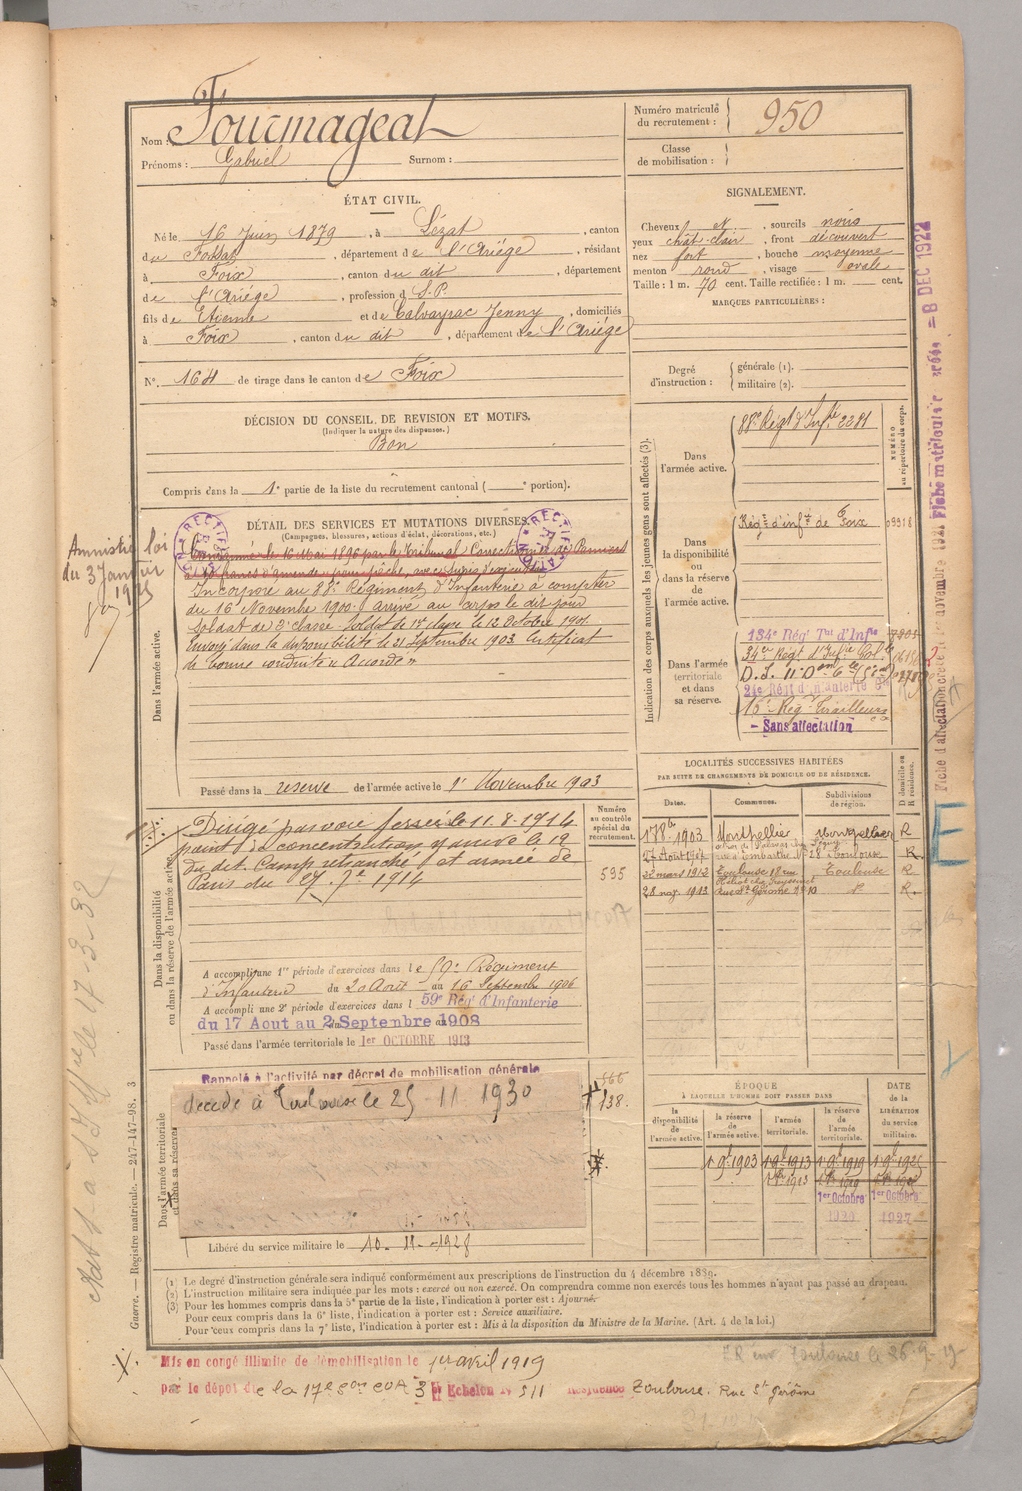 Nom : Fourmageat
Prénoms : Gabriel Surnom :
Numéro matricule du recrutement : 950
Classe de mobilisation :
ÉTAT CIVIL.
Né le 16 Juin 1879, à Lézat, canton
du Fossat, département de l'Ariége, résidant
à Foix, canton du dit, département
de l'Ariége, profession d S.P.
fils de Etienne et de Calvayrac Jenny, domiciliés
à Foix, canton du dit, département de l'Ariége
N° 164 de tirage dans le canton de Foix
SIGNALEMENT.
Cheveux et, sourcils noirs
yeux chât-clair, front découvert
nez fort, bouche moyenne
menton rond, visage ovale
Taille : 1 m. 70 cent. Taille rectifiée : 1 m. cent.
MARQUES PARTICULIÈRES :
Degré d'instruction : générale (1).
militaire (2).
DÉCISION DU CONSEIL DE REVISION ET MOTIFS.
(Indiquer la nature des dispenses.)
Bon
Compris dans la 1e partie de la liste du recrutement cantonal ( e portion).
DÉTAIL DES SERVICES ET MUTATIONS DIVERSES.
(Campagnes, blessures, actions d'éclat, décorations, etc.)
RECTIFICATION
RECTIFICATION
Amnistié loi
du 3 Janvier
1925
Condamné le 16 Mai 1896 par le Tribunal Correctionnel de Pamiers
francs d'amende pour pêche, avec sursis
Dans l'armée active.
Incorporé au 88e Régiment d'Infanterie à compter
du 16 Novembre 1900. arrivé au corps le dit jour
soldat de 2e classe. Soldat de 1re classe le 12 Octobre 1901.
Envoyé dans la disponibilité le 21 Septembre 1903. Certificat
de bonne conduite « Accordé »
Passé dans la réserve de l'armée active le 1er Novembre 1903
Indication des corps auxquels les jeunes gens sont affectés (3).
NUMÉRO au répertoire du corps.
Dans l'armée active.
88e Régt d'Infie 2281
Dans la disponibilité ou dans la réserve de l'armée active.
Régt d'Infie de Foix
Dans l'armée territoriale et dans sa réserve.
134e Rég Tal d'Infie
34e Régt d'Infie Colle
24e Régt d'Infanterie Cle
16e Rég Tirailleurs
- Sans affectation
Fiche matriculaire créée = 8 DEC 1922
Fiche d'affectation créée le novembre 192
LOCALITÉS SUCCESSIVES HABITÉES
PAR SUITE DE CHANGEMENTS DE DOMICILE OU DE RÉSIDENCE.
Dates. Communes. Subdivisions de région. D domicile ou R résidence.
17 8b 1903 Montpellier Montpellier R
Toulouse R
22 mars 1912 Toulouse 18 rue Toulouse R
28 nov. 1913 rue St Gérome No 10 R.
E
Dans la disponibilité ou dans la réserve de l'armée active.
Numéro au contrôle spécial du recrutement.
595
Dirigé par voie ferrée le 11.8.1914
point de concentration y arrivé le 12
du dit. Camp retranché et armée de
Paris du 1914
A accompli une 1re période d'exercices dans le 59e Régiment
d'Infanterie du 20 Août au 16 Septembre 1906
A accompli une 2e période d'exercices dans l 59e Rég d'Infanterie
du 17 Aout au 2 Septembre 1908
Passé dans l'armée territoriale le 1er OCTOBRE 1913
Dans l'armée territoriale et dans sa réserve.
Rappelé à l'activité par décret de mobilisation générale
décédé à Toulouse le 25 - 11 - 1930
566
138.
Libéré du service militaire le 10 - 11 - 1928
ÉPOQUE
À LAQUELLE L'HOMME DOIT PASSER DANS
DATE de la LIBÉRATION du service militaire.
la disponibilité de l'armée active. la réserve de l'armée active. l'armée territoriale. la réserve de l'armée territoriale.
1 9b 1903 1 9b 1913 1 9b 1919 1 9b 1925
1er Octobre 1er Octobre
1927
Guerre. — Registre matricule. — 247-147-98. 3
(1) Le degré d'instruction générale sera indiqué conformément aux prescriptions de l'instruction du 4 décembre 1889.
(2) L'instruction militaire sera indiquée par les mots : exercé ou non exercé. On comprendra comme non exercés tous les hommes n'ayant pas passé au drapeau.
(3) Pour les hommes compris dans la 5e partie de la liste, l'indication à porter est : Ajourné.
Pour ceux compris dans la 6e liste, l'indication à porter est : Service auxiliaire.
Pour ceux compris dans la 7e liste, l'indication à porter est : Mis à la disposition du Ministre de la Marine. (Art. 4 de la loi.)
Mis en congé illimité de démobilisation le 1er avril 1919
par le dépôt de la 17e son COA 3e Echelon No 511 Résidence Toulouse. Rue St Gérôme